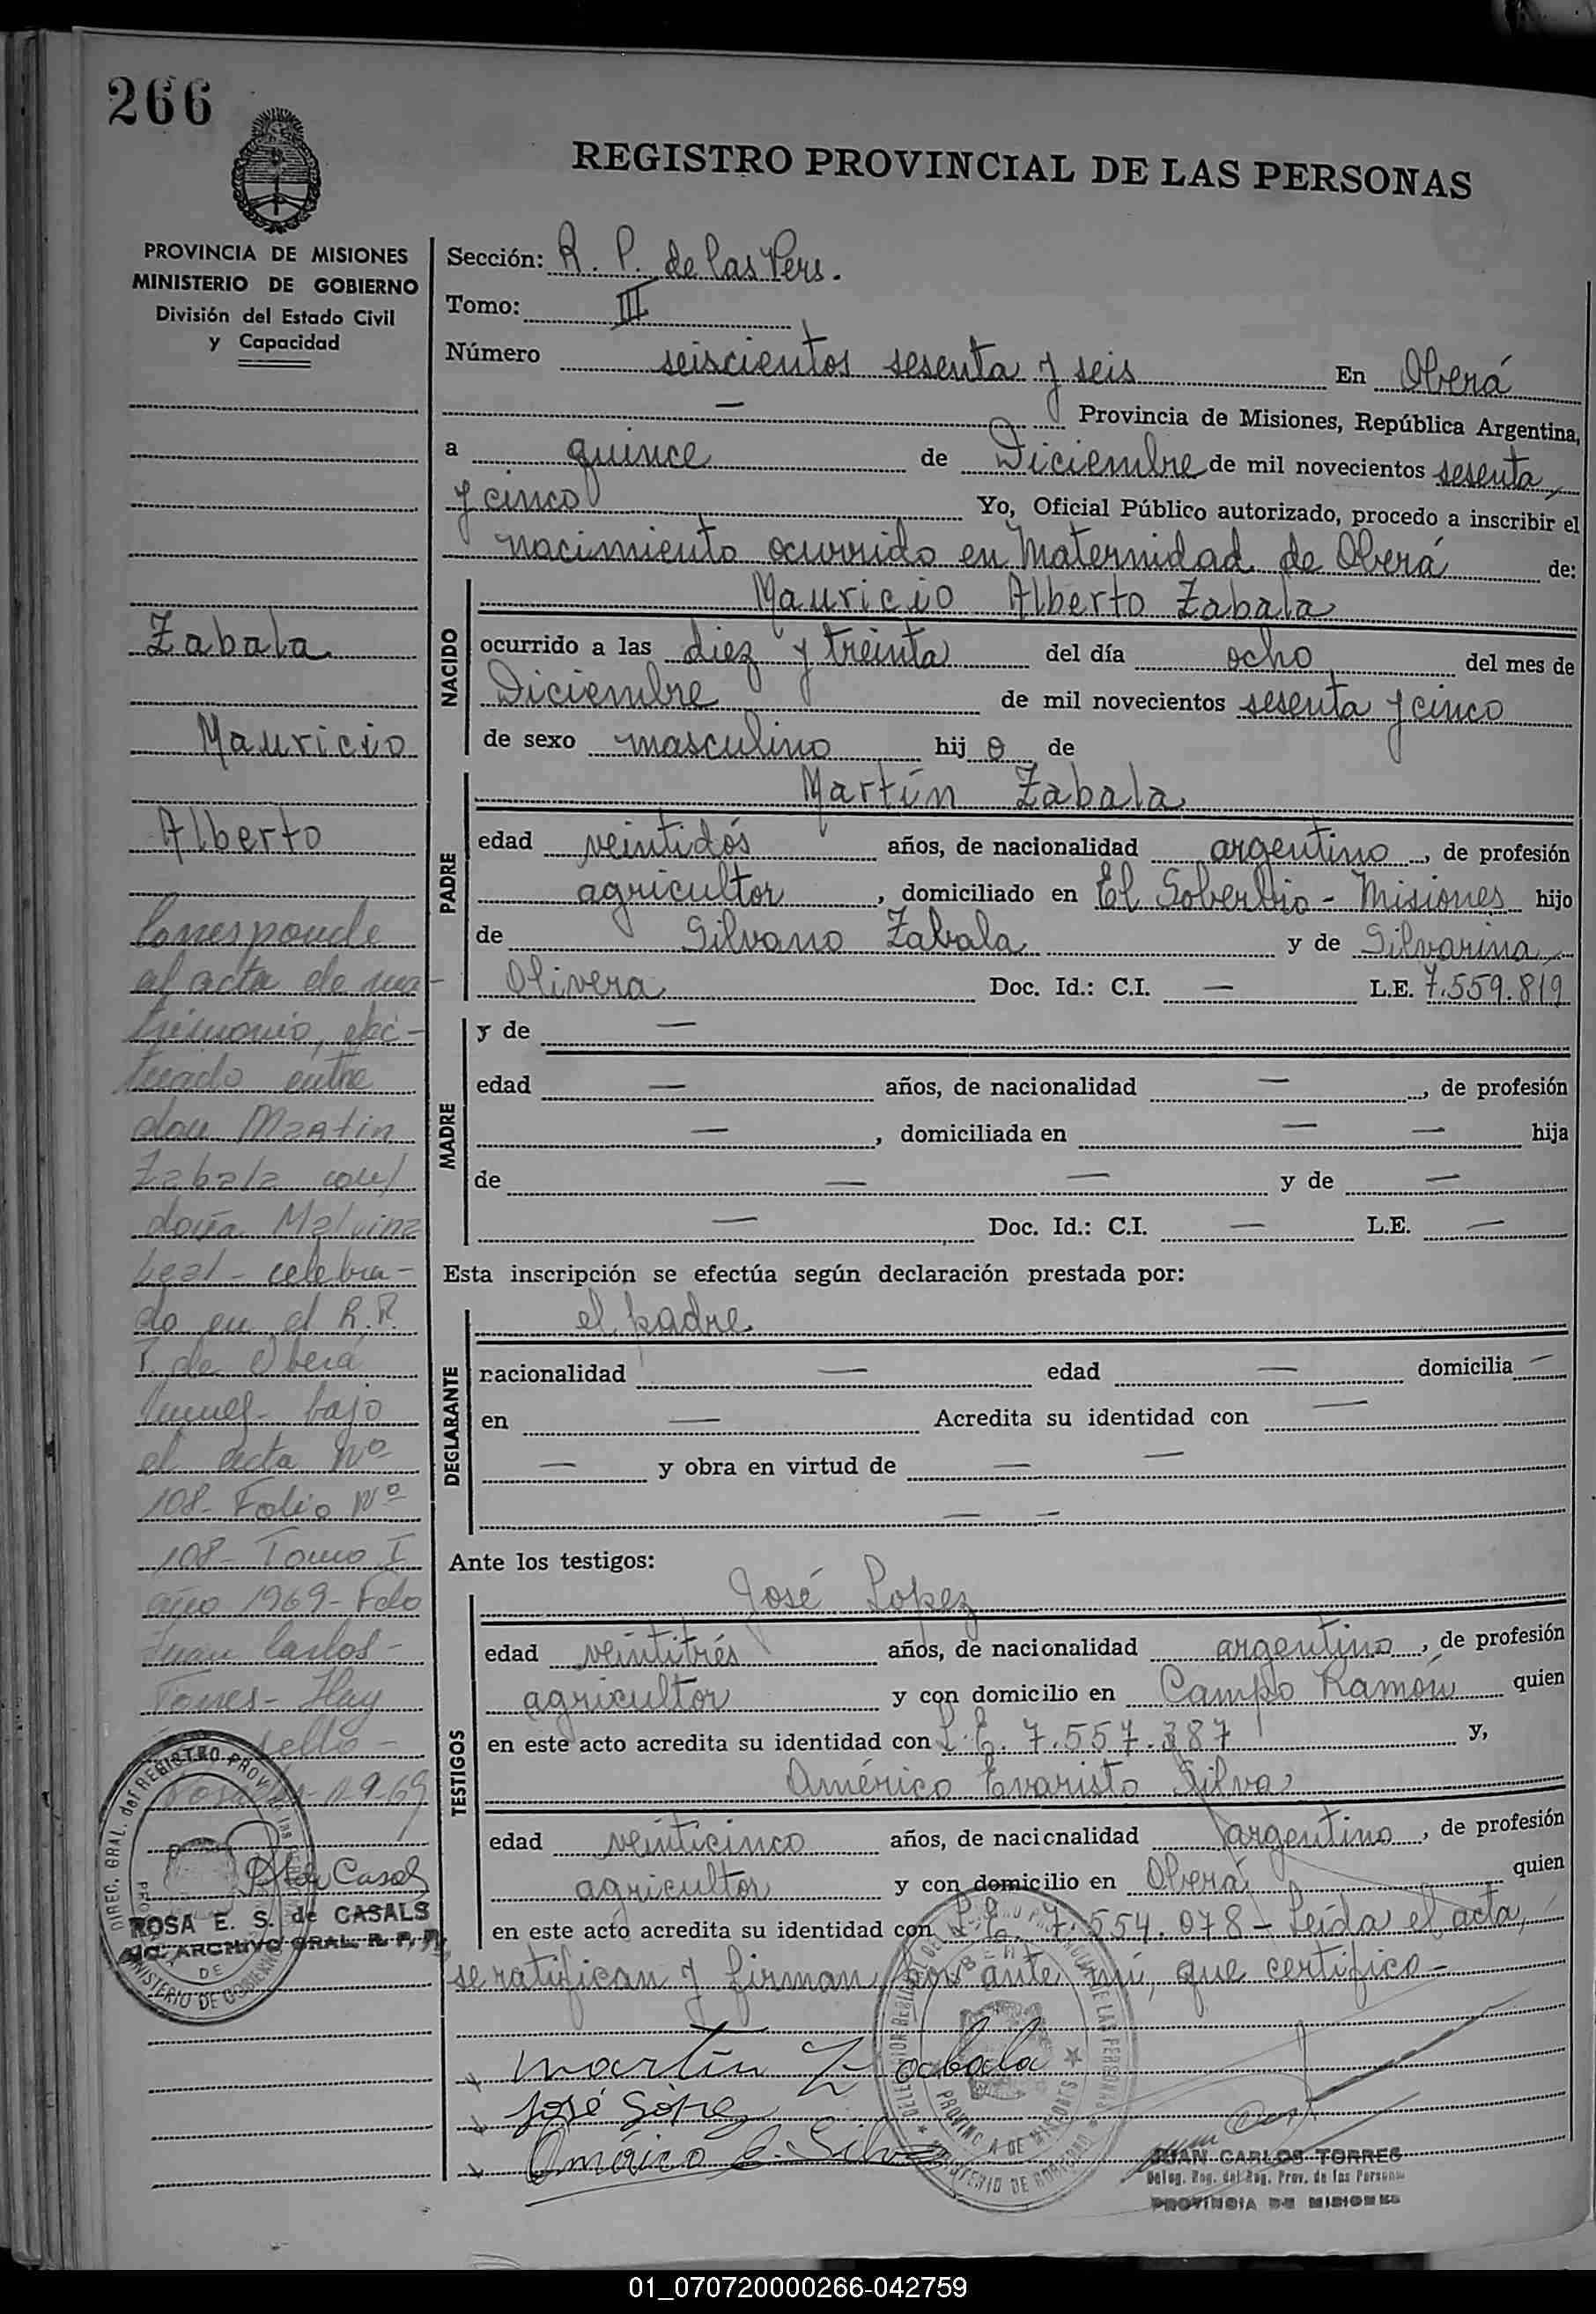 266
REGISTRO PROVINCIAL DE LAS PERSONAS
PROVINCIA DE MISIONES
MINISTERIO DE GOBIERNO
División del Estado Civil
y Capacidad
Zabala
Mauricio
Alberto
Corresponde
al acta de ma-
trimonio, efec-
tuado entre
don Martin
Zabala con
doña Malvina
Leal - celebra-
do en el R.P.
P. de Oberá
bajo
el acta Nº
108 - Folio Nº
108 - Tomo I
año 1969 - Fdo
Juan Carlos -
Torres - Hay
sello -
9-69
ROSA E. S. de CASALS
ARCHIVO GRAL. R. P. P.
DIREC. GRAL. del REGISTRO PROV. de las
MINISTERIO DE GOBIERNO
Sección: R. P. de las Pers.
Tomo: III
Número seiscientos sesenta y seis En Oberá
— Provincia de Misiones, República Argentina,
a quince de Diciembre de mil novecientos sesenta
y cinco Yo, Oficial Público autorizado, procedo a inscribir el
nacimiento ocurrido en Maternidad de Oberá de:
NACIDO
Mauricio Alberto Zabala
ocurrido a las diez y treinta del día ocho del mes de
Diciembre de mil novecientos sesenta y cinco
de sexo masculino hij o de
PADRE
Martín Zabala
edad veintidós años, de nacionalidad argentino, de profesión
agricultor, domiciliado en El Soberbio - Misiones hijo
de Silvano Zabala y de Silvarina
Olivera Doc. Id.: C.I. — L.E. 7.559.819
MADRE
y de —
edad — años, de nacionalidad —, de profesión
—, domiciliada en — — hija
de — — y de —
— Doc. Id.: C.I. — L.E. —
Esta inscripción se efectúa según declaración prestada por:
DECLARANTE
el padre
nacionalidad — edad — domicilia —
en — Acredita su identidad con —
— y obra en virtud de — —
— —
Ante los testigos:
TESTIGOS
José Lopez
edad veintitrés años, de nacionalidad argentino, de profesión
agricultor y con domicilio en Campo Ramón quien
en este acto acredita su identidad con L.E. 7.557.387 y,
Américo Evaristo Silva
edad veinticinco años, de nacionalidad argentino, de profesión
agricultor y con domicilio en Oberá quien
en este acto acredita su identidad con L.E. 7.554.078 - Leída el acta,
se ratifican y firman por ante mí, que certifico -
martín Zabala
José López
Américo E. Silva
PROVINCIA DE MISIONES
MINISTERIO DE GOBIERNO
JUAN CARLOS TORRES
Deleg. Reg. del Reg. Prov. de las Personas
PROVINCIA DE MISIONES
01_070720000266-042759